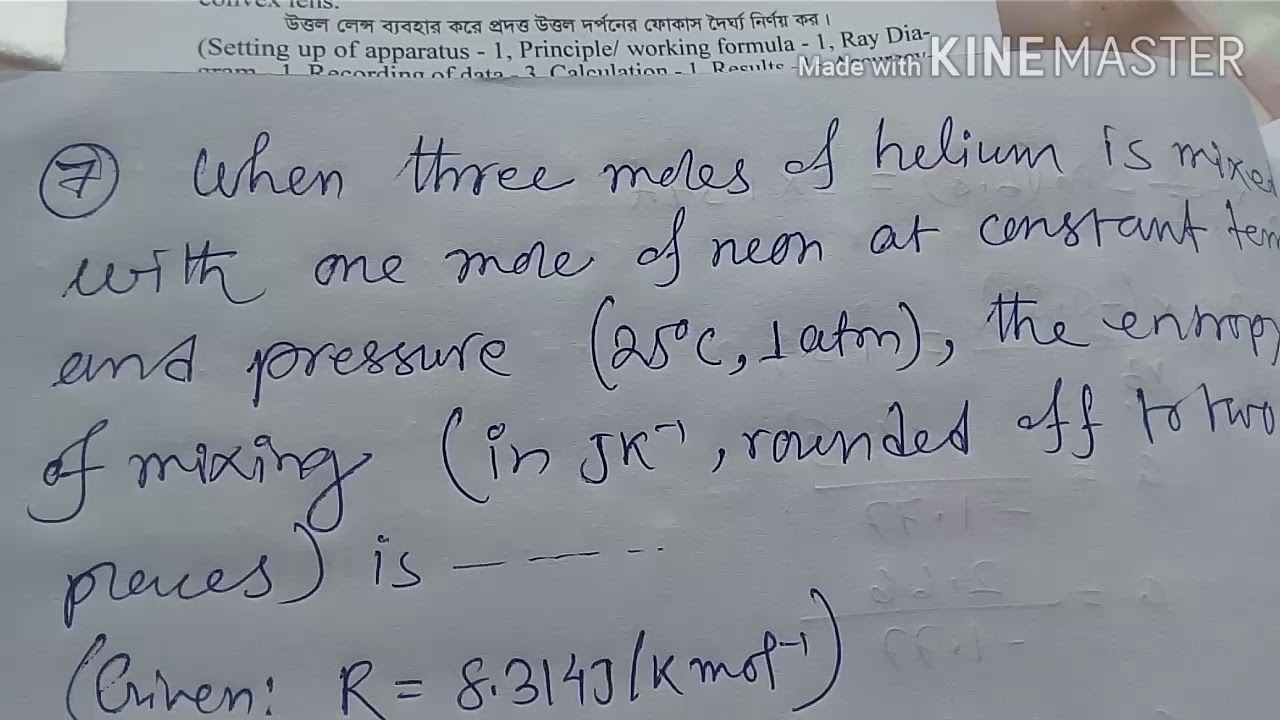 convex lens.
উত্তল লেন্স ব্যবহার করে প্রদত্ত উত্তল দর্পনের ফোকাস দৈর্ঘ্য নির্ণয় কর।
(Setting up of apparatus - 1, Principle/ working formula - 1, Ray Dia-
gram - 1 Recording of data - 3 Calculation - 1 Results
Made with KINEMASTER
7 When three moles of helium is mixe
with one mole of neon at constant tem
and pressure (25°C, 1 atm), the entropy
of mixing (in JK⁻¹, rounded off to two
places) is ----
(Given: R = 8.314 J/K mol⁻¹)